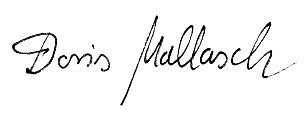 Doris Mallasch